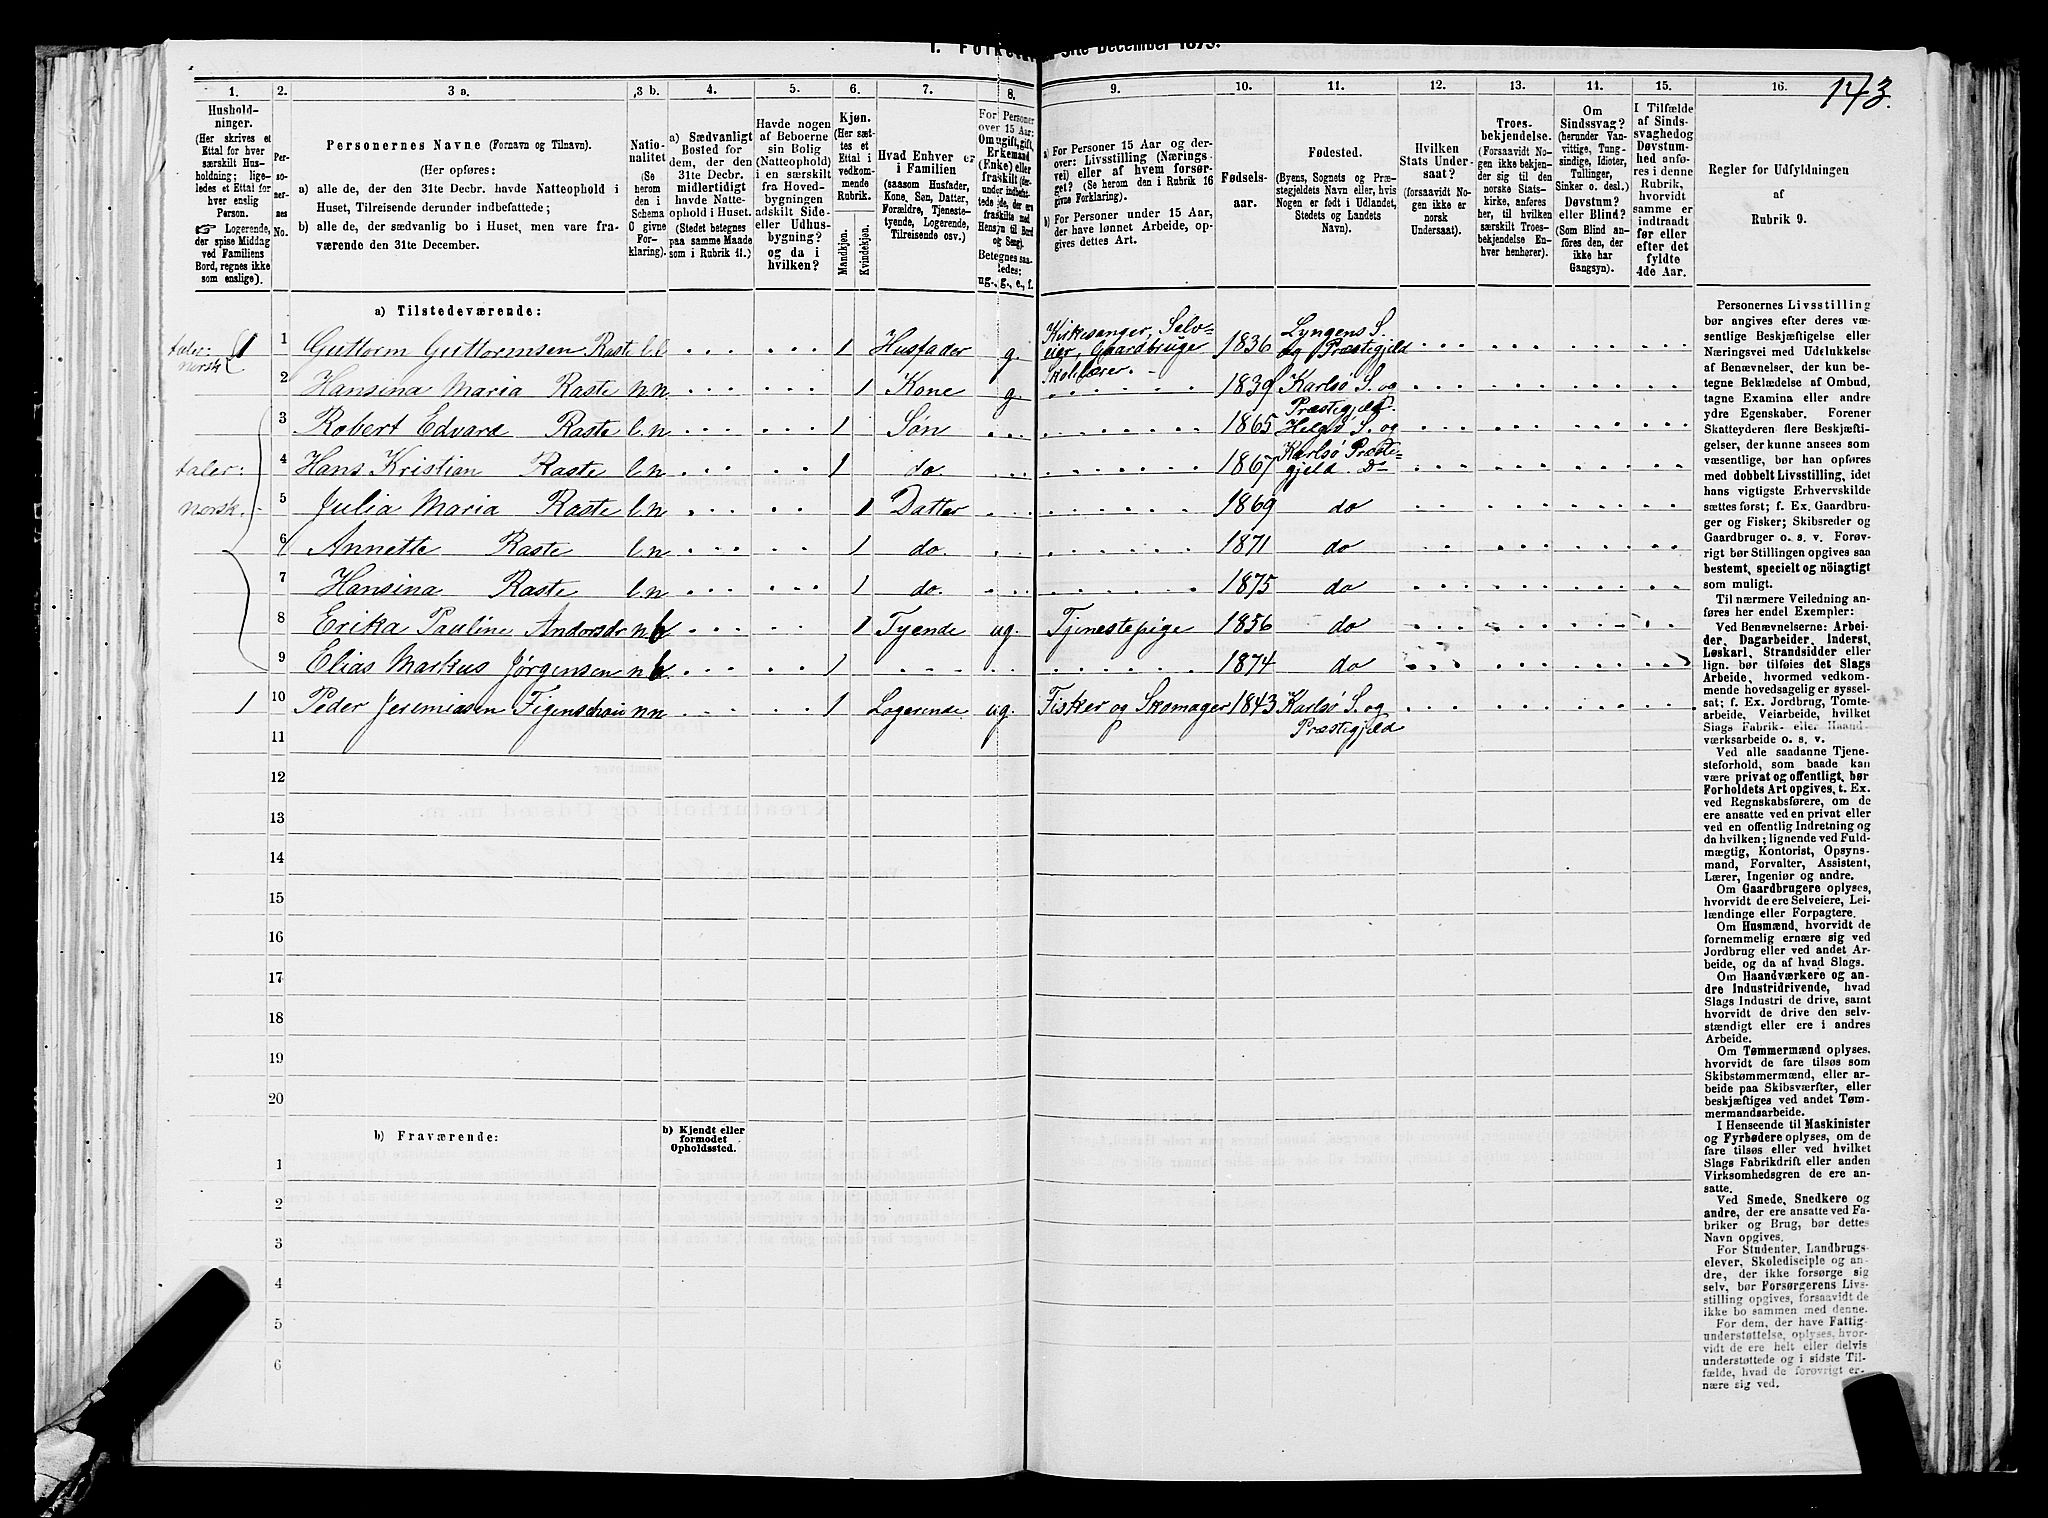 31te December 1875.
143.
1.
2.
3 a.
3 b.
4.
5.
6.
7.
8.
9.
10.
11.
12.
13.
11.
15.
16.
Hushold-
ninger.
(Her skrives et
Ettal for hver
særskilt Hus-
holdning; lige-
ledes et Ettal for
hver enslig
Person.
☞ Logerende,
der spise Middag
ved Familiens
Bord, regnes ikke
som enslige).
Per-
so-
ner-
nes
No.
Personernes Navne (Fornavn og Tilnavn).
(Her opføres:
a) alle de, der den 31te Decbr. havde Natteophold i
Huset, Tilreisende derunder indbefattede;
b) alle de, der sædvanlig bo i Huset, men vare fra-
værende den 31te December.
Natio-
nalitet
(Se
herom
den i
Schema
O givne
For-
klaring).
a) Sædvanligt
Bosted for
dem, der den
31te Decbr.
midlertidigt
havde Natte-
ophold i Huset.
(Stedet betegnes
paa samme Maade
som i Rubrik 11.)
Havde nogen
af Beboerne
sin Bolig
(Natteophold)
i en særskilt
fra Hoved-
bygningen
adskilt Side-
eller Udhus-
bygning?
og da i
hvilken?
Kjøn.
(Her sæt-
tes et
Ettal i
vedkom-
mende
Rubrik.
Mandkjøn.
Kvindekjøn.
Hvad Enhver er
i Familien
(saasom Husfader,
Kone, Søn, Datter,
Forældre, Tjeneste-
tyende, Logerende,
Tilreisende osv.)
For Personer
over 15 Aar:
Om ugift, gift,
Enkemand
(Enke) eller
fraskilt (der-
under indbefat-
tede de, der ere
fraskilte med
Hensyn til Bord
og Seng).
Betegnes saa-
ledes:
ug., g., e., f.
a) For Personer 15 Aar og der-
over: Livsstilling (Nærings-
vei) eller af hvem forsør-
get? (Se herom den i Rubrik 16
givne Forklaring).
b) For Personer under 15 Aar,
der have lønnet Arbeide, op-
gives dettes Art.
Fødsels-
aar.
Fødested.
(Byens, Sognets og Præ-
stegjeldets Navn eller, hvis
Nogen er født i Udlandet,
Stedets og Landets
Navn).
Hvilken
Stats Under-
saat?
(forsaavidt No-
gen ikke er
norsk
Undersaat).
Troes-
bekjendelse.
(Forsaavidt No-
gen ikke bekjen-
der sig til den
norske Stats-
kirke, anføres
her, til hvilken
særskilt Troes-
bekjendelse En-
hver henhører).
Om
Sindssvag?
(herunder Van-
vittige, Tung-
sindige, Idioter,
Tullinger,
Sinker o. desl.)
Døvstum?
eller Blind?
(Som Blind an-
føres den, der
ikke har
Gangsyn).
I Tilfælde
af Sinds-
svaghed og
Døvstum-
hed anfø-
res i denne
Rubrik,
hvorvidt
samme er
indtraadt
før eller
efter det
fyldte
4de Aar.
Regler for Udfyldningen
af
Rubrik 9.
a) Tilstedeværende:
taler: norsk 1 1 Guttorm Guttormsen Raste l.l. 1 Husfader g. Kirkesanger, Selv-eier, Gaardbruge Skolelærer. 1836 Lyngens S. og Præstegjeld
2 Hansina Maria Raste n.n. 1 Kone g. 1839 Karlsø S. og Præstegjeld.
3 Robert Edvard Raste l.n 1 Søn 1865 Helgø S. og Karlsø Præste-gjeld.
4 Hans Kristian Raste l.n 1 do. 1867 Do
taler: norsk. 5 Julia Maria Raste l.n 1 Datter 1869 do
6 Annette Raste l.n 1 do. 1871 do
7 Hansina Raste l.n 1 do. 1875 do
8 Erika Pauline Andorsdr n b 1 Tyende ug. Tjenestepige 1856 do
9 Elias Markus Jørgensen n b. 1 1874 do
1 10 Peder Jeremiasen Figenschau n.n 1 Logerende ug. Fisker og Skomager 1843 Karlsø S. og Præstegjeld
11
12
13
14
15
16
17
18
19
20
b) Fraværende:
b) Kjendt eller
formodet
Opholdssted.
1
2
3
4
5
6
Personernes Livsstilling
bør angives efter deres væ-
sentlige Beskjæftigelse eller
Næringsvei med Udelukkelse
af Benævnelser, der kun be-
tegne Beklædelse af Ombud,
tagne Examina eller andre
ydre Egenskaber. Forener
Skatteyderen flere Beskjæfti-
gelser, der kunne ansees som
væsentlige, bør han opføres
med dobbelt Livsstilling, idet
hans vigtigste Erhvervskilde
sættes først; f. Ex. Gaardbru-
ger og Fisker; Skibsreder og
Gaardbruger o. s. v. Forøv-
rigt bør Stillingen opgives saa
bestemt, specielt og nöiagtigt
som muligt.
Til nærmere Veiledning an-
føres her endel Exempler:
Ved Benævnelserne: Arbei-
der, Dagarbeider, Inderst,
Løskarl, Strandsidder eller
lign. bør tilføies det Slags
Arbeide, hvormed vedkom-
mende hovedsagelig er syssel-
sat; f. Ex. Jordbrug, Tomte-
arbeide, Veiarbeide, hvilket
Slags Fabrik- eller Haand-
værksarbeide o. s. v.
Ved alle saadanne Tjene-
steforhold, som baade kan
være privat og offentligt, bør
Forholdets Art opgives, t. Ex.
ved Regnskabsførere, om de
ere ansatte ved en privat eller
ved en offentlig Indretning og
da hvilken; lignende ved Fuld-
mægtig, Kontorist, Opsyns-
mand, Forvalter, Assistent,
Lærer, Ingeniør og andre.
Om Gaardbrugere oplyses,
hvorvidt de ere Selveiere, Lei-
lændinge eller Forpagtere.
Om Husmænd, hvorvidt de
fornemmelig ernære sig ved
Jordbrug eller ved andet Ar-
beide, og da af hvad Slags.
Om Haandværkere og an-
dre Industridrivende, hvad
Slags Industri de drive, samt
hvorvidt de drive den selv-
stændigt eller ere i andres
Arbeide.
Om Tømmermænd oplyses,
hvorvidt de fare tilsøs som
Skibstømmermænd, eller ar-
beide paa Skibsværfter, eller
beskjæftiges ved andet Tøm-
mermandsarbeide.
I Henseende til Maskinister
og Fyrbødere oplyses, om de
fare tilsøs eller ved hvilket
Slags Fabrikdrift eller anden
Virksomhedsgren de ere an-
satte.
Ved Smede, Snedkere og
andre, der ere ansatte ved Fa-
briker og Brug, bør dettes
Navn opgives.
For Studenter, Landbrugs-
elever, Skoledisciple og an-
dre, der ikke forsørge sig
selv, bør Forsørgerens Livs-
stilling opgives, forsaavidt de
ikke bo sammen med denne.
For dem, der have Fattig-
understøttelse, oplyses, hvor-
vidt de ere helt eller delvis
understøttede og i sidste Til-
fælde, hvad de forøvrigt er-
nære sig ved.